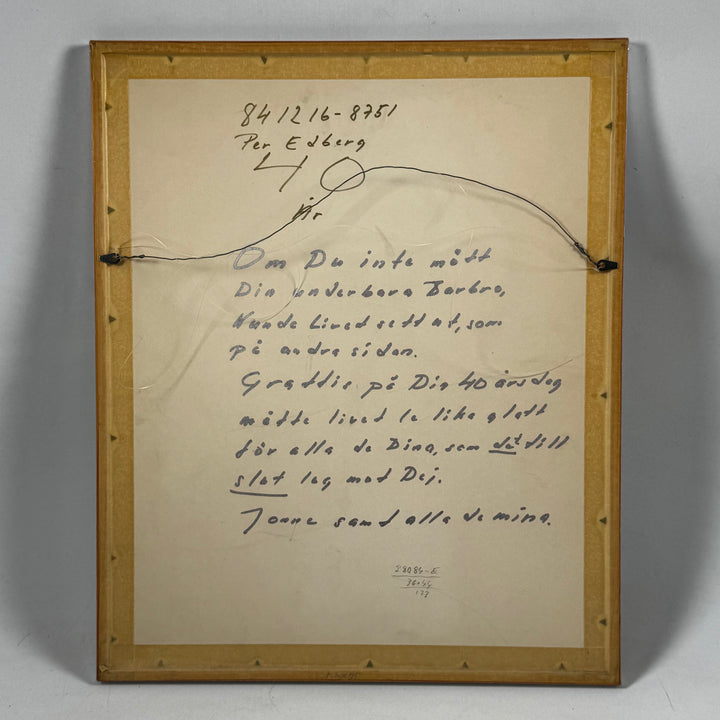 841216-8751
Per Edberg
40
år
Om Du inte mött
Din underbara Barbro,
Kunde Livet sett ut, som
på andra sidan.
Grattis på Din 40 årsdag
måtte livet le lika glatt
för alla de Dina, som det till
slut log mot Dej.
Jonne samt alla de mina.
28084-E
36+44